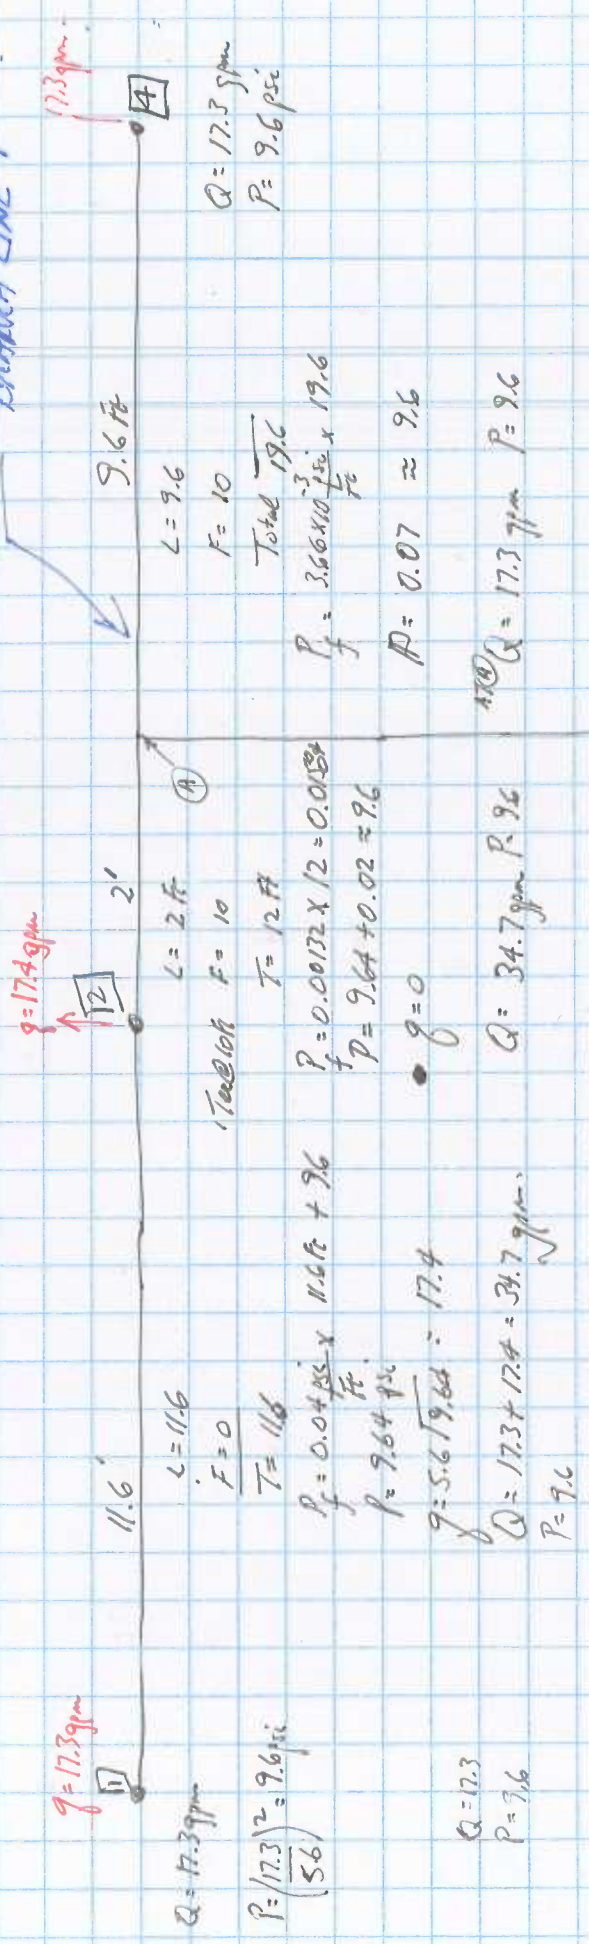 BRANCH LINE 1
q=17.3gpm
1
11.6'
q=17.4gpm
2
2'
A
9.6 Ft
17.3gpm
4
Q=17.3gpm
P=(17.3/5.6)²=9.6psi
Q=17.3
P=9.6
L=11.6
F=0
T=11.6
Pf=0.04 psi/Ft x 11.6Ft + 9.6
P=9.64 psi
q=5.6√9.64 = 17.4
Q=17.3+17.4=34.7 gpm.
P=9.6
L=2 Ft
Tee@10ft F=10
T=12 Ft
Pf=0.00132 x 12=0.0158
P=9.64+0.02≈9.6
• q=0
Q=34.7gpm P=9.6
L=9.6
F=10
Total 19.6
Pf = 3.66x10⁻³ psi/Ft x 19.6
P=0.07 ≈ 9.6
AT A Q=17.3 gpm P=9.6
Q=17.3 gpm
P= 9.6 psi